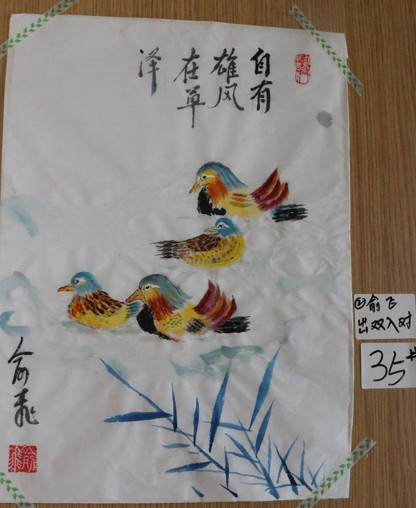 自有
雄风
在草
泽
俞飞
②俞飞
出双入对
35#